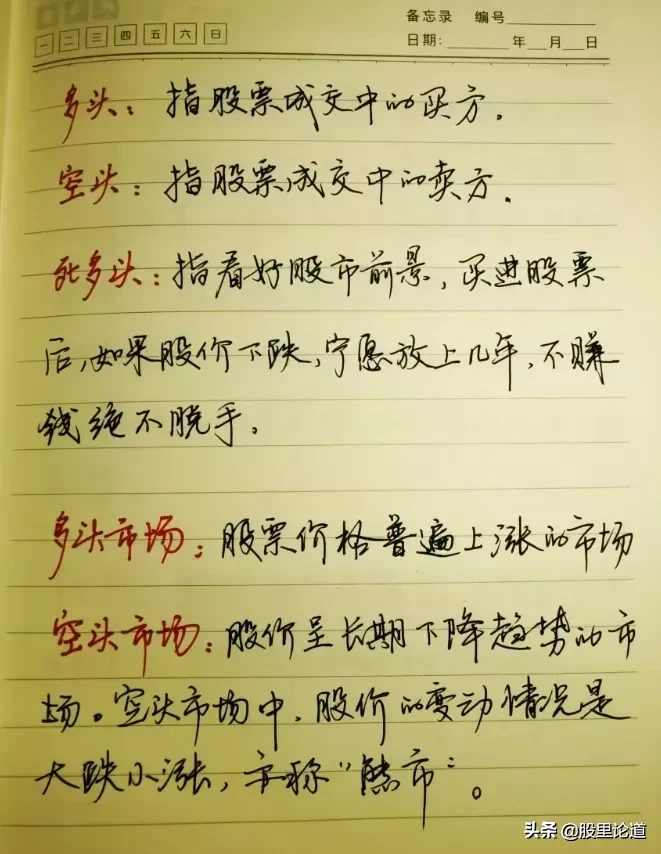 备忘录 编号
一 二 三 四 五 六 日
日期: 年 月 日
多头：指股票成交中的买方.
空头：指股票成交中的卖方.
死多头：指看好股市前景,买进股票
后,如果股价下跌,宁愿放上几年,不赚
钱绝不脱手.
多头市场：股票价格普遍上涨的市场
空头市场：股价呈长期下降趋势的市
场。空头市场中,股价的变动情况是
大跌小涨,亦称"熊市"。
头条 @股里论道